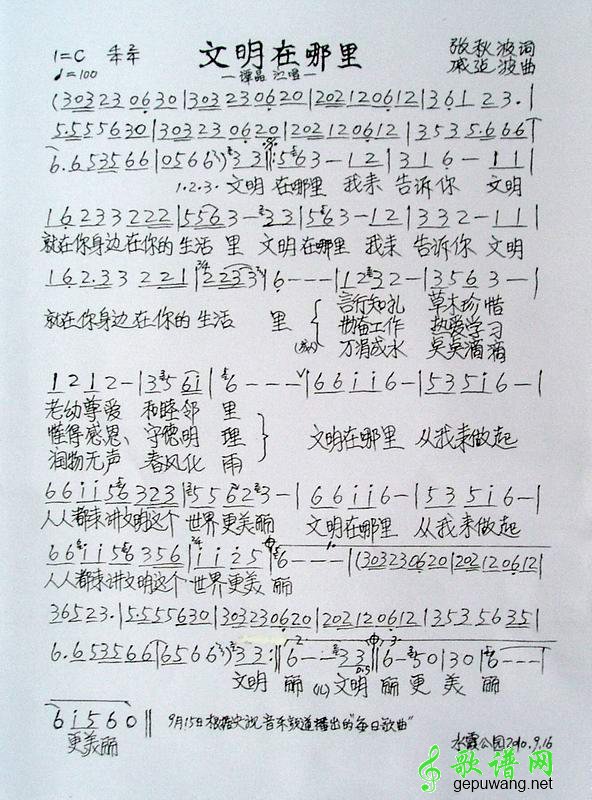 文明在哪里
1=C
♩=100
—谭晶 演唱—
张秋波词
戚建波曲
(3032 30630|303230620|202120612|361 23.|
5.5555630|303230620|202120612|3535.666|
6.653566|0566)33|563-12|316-11|
1.2.3.文明 在哪里 我来 告诉你 文明
16233222|5563-33|563-12|332-11|
就在你身边在你的 生活 里 文明在哪里 我来 告诉你 文明
162.33 221|2233|6---|1232-|3563-|
就在你身边在你的 生活 里 言行知礼 草木珍惜
勤奋工作 热爱学习
万涓成水 点点滴滴
1212-|3561|6---|6611 6-|5351 6-|
老幼尊爱 和睦邻 里
懂得感恩、守德明 理 文明在哪里 从我来做起
润物无声 春风化 雨
661156323|5562 3-|66116-|53516-|
人人都来讲文明这个 世界更美丽 文明在哪里 从我来做起
661156356|1125|6---|(303230620|202120612|
人人都来讲文明这个 世界更美 丽
36523.|5.5555630|303230620|202120612|35355635|
6.6535666|6566)33:|6--33|6-50|30|6---|
文明 丽 文明 丽 更 美 丽
61560||
更美丽
9月15日根据央视音乐频道播出的"每日歌曲"
水霞公园2010.9.16
歌谱网
gepuwang.net